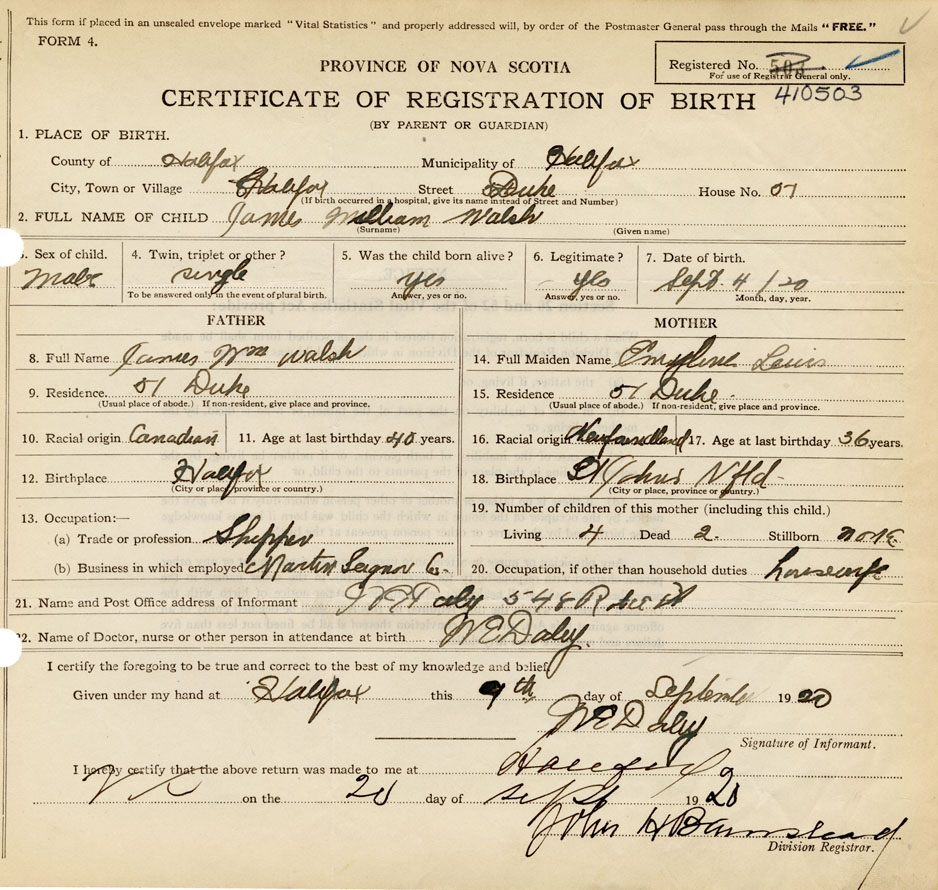 This form if placed in an unsealed envelope marked "Vital Statistics" and properly addressed will, by order of the Postmaster General pass through the Mails "FREE."
FORM 4.
Registered No. 503
For use of Registrar General only.
410503
PROVINCE OF NOVA SCOTIA
CERTIFICATE OF REGISTRATION OF BIRTH
(BY PARENT OR GUARDIAN)
1. PLACE OF BIRTH.
County of Halifax Municipality of Halifax
City, Town or Village Halifax Street Duke House No. 51
(If birth occurred in a hospital, give its name instead of Street and Number)
2. FULL NAME OF CHILD James William Walsh
(Surname) (Given name)
3. Sex of child. 4. Twin, triplet or other? 5. Was the child born alive? 6. Legitimate? 7. Date of birth.
Male single yes yes Sept. 4 / 20
To be answered only in the event of plural birth. Answer, yes or no. Answer, yes or no. Month, day, year.
FATHER MOTHER
8. Full Name James Wm Walsh 14. Full Maiden Name Emyline Lewis
9. Residence. 51 Duke 15. Residence 51 Duke.
(Usual place of abode.) If non-resident, give place and province. (Usual place of abode.) If non-resident, give place and province.
10. Racial origin Canadian 11. Age at last birthday 40 years. 16. Racial origin Newfoundland 17. Age at last birthday 36 years.
12. Birthplace Halifax 18. Birthplace St Johns Nfld-
(City or place, province or country.) (City or place, province or country.)
13. Occupation:— 19. Number of children of this mother (including this child.)
(a) Trade or profession Shipper Living 4 Dead 2. Stillborn none
(b) Business in which employed Martin Co. 20. Occupation, if other than household duties housewife
21. Name and Post Office address of Informant Daly 548
22. Name of Doctor, nurse or other person in attendance at birth W E Daley.
I certify the foregoing to be true and correct to the best of my knowledge and belief.
Given under my hand at Halifax this 9th day of September 1920
W E Daly
Signature of Informant.
I hereby certify that the above return was made to me at
on the 20 day of Sept 1920
John H Barnstead
Division Registrar.